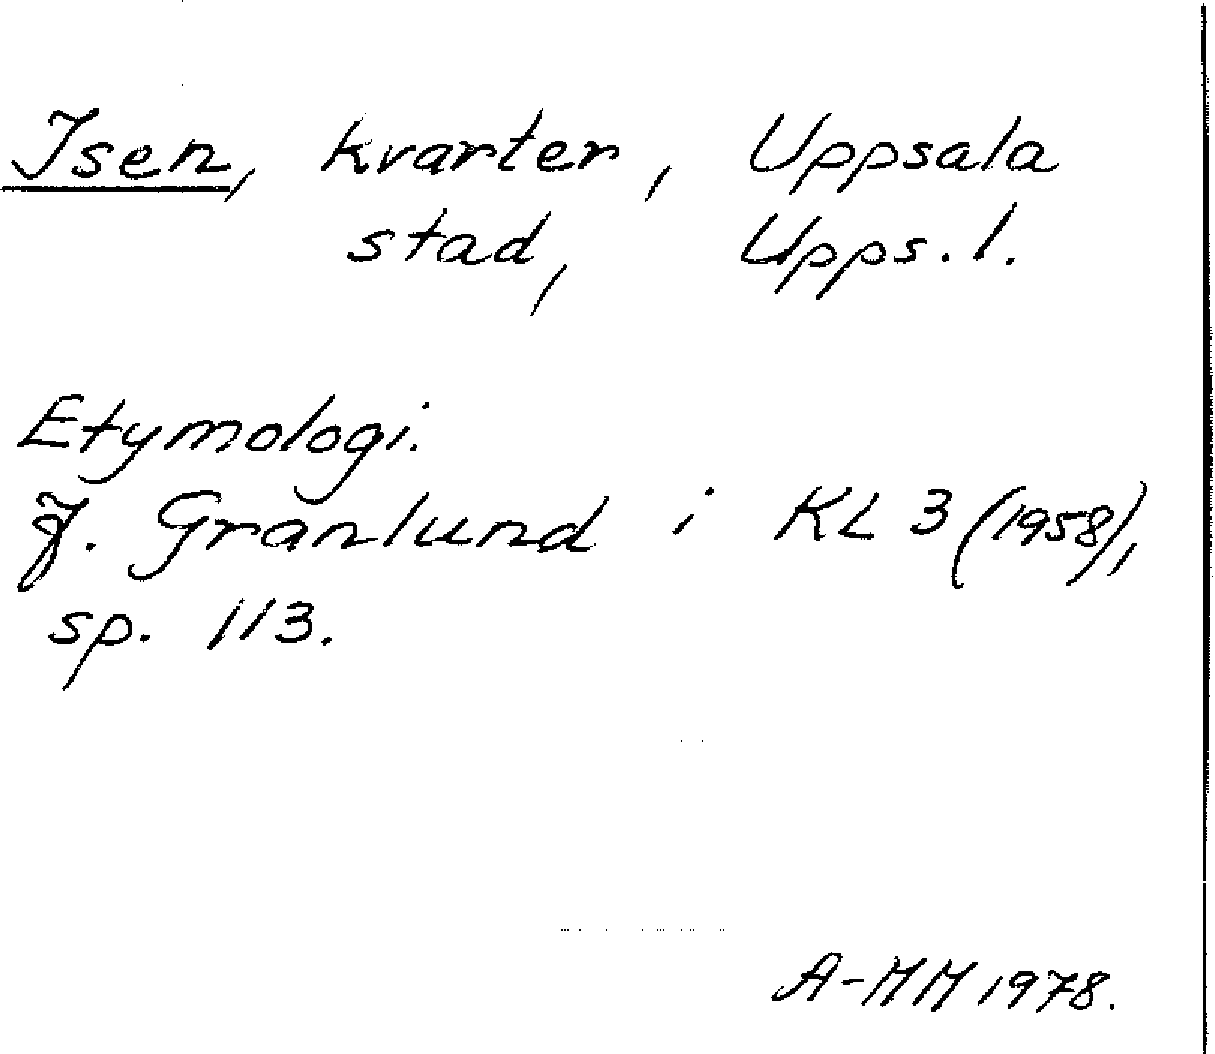 Isen, kvarter, Uppsala
stad, Upps. l.
Etymologi.
J. Granlund i KL 3 (1958),
sp. 113.
A-MM 1978.